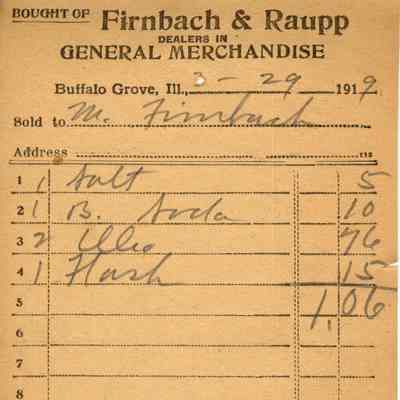 BOUGHT OF Firnbach & Raupp
DEALERS IN
GENERAL MERCHANDISE
Buffalo Grove, Ill., 3-29 1919
Sold to M. Firnbach
Address
1 1 Salt 5
2 1 B. Soda 10
3 2 Oleo 76
4 1 15
5 1.06
6
7
8